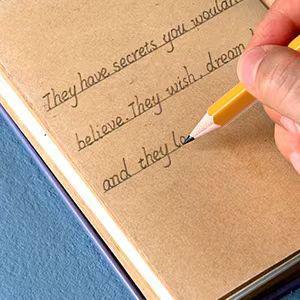 They have secrets you wouldn
believe. They wish, dream,
and they lo